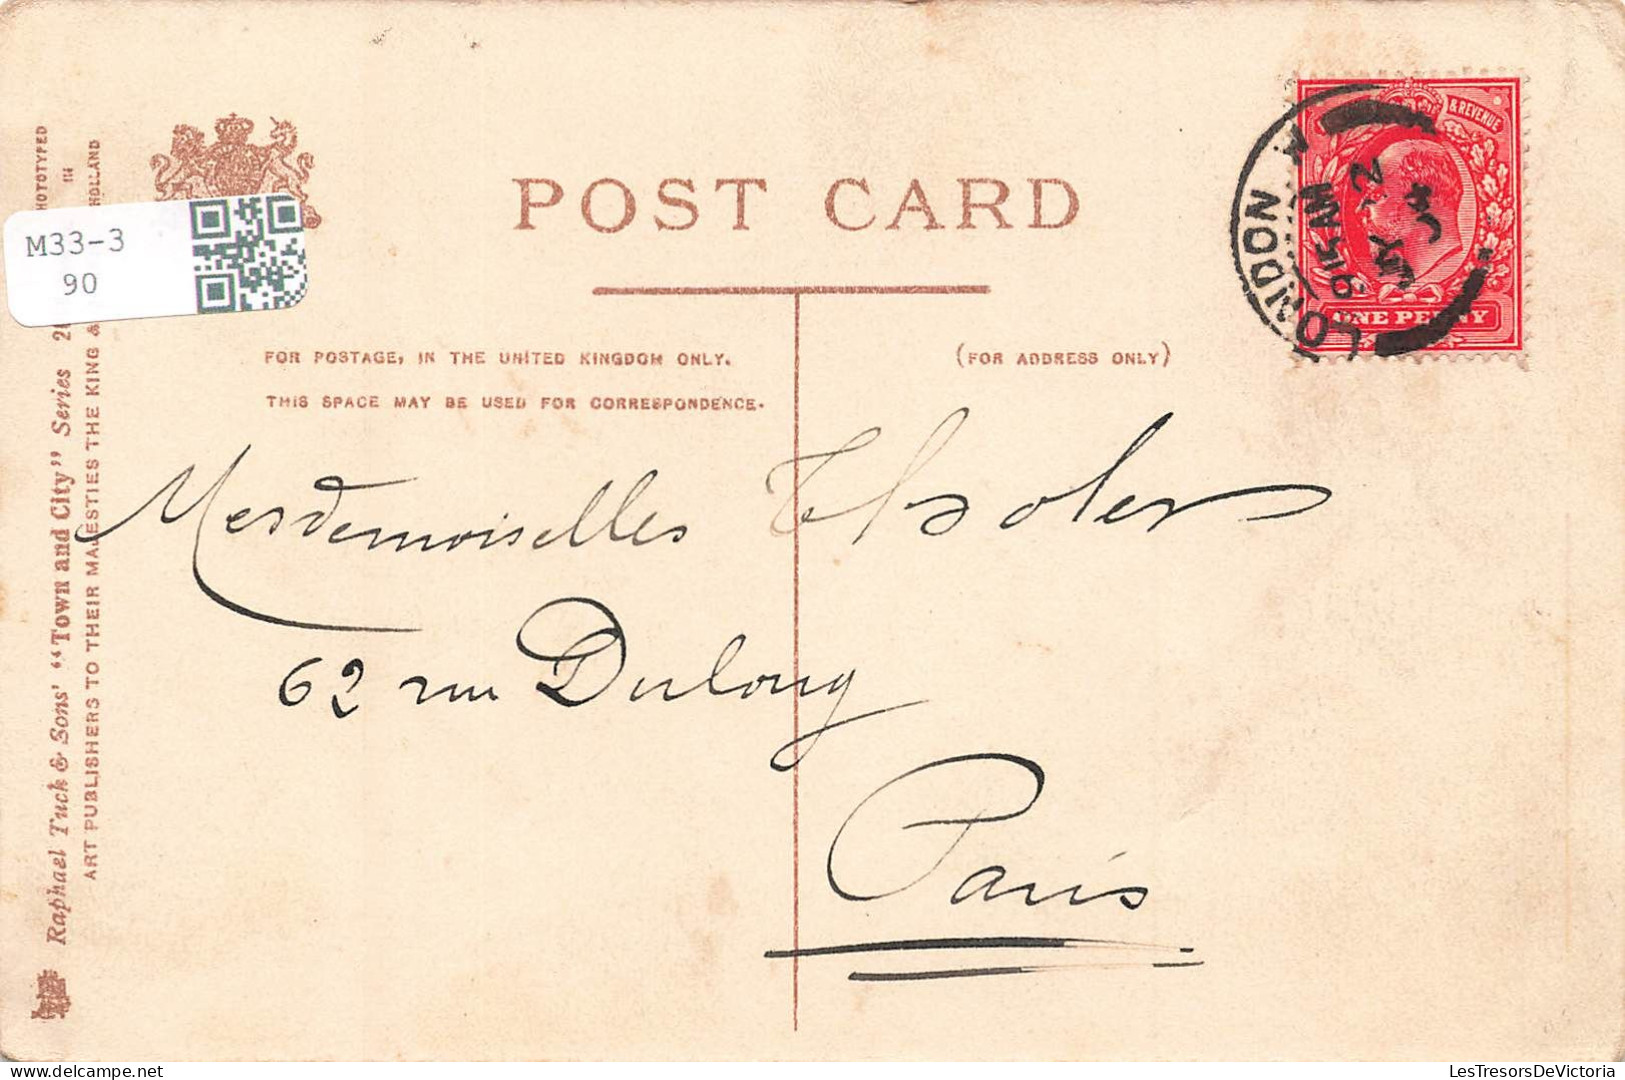 POST CARD
& REVENUE
ONE PENNY
LONDON
9 15 AM
FOR POSTAGE, IN THE UNITED KINGDOM ONLY.
THIS SPACE MAY BE USED FOR CORRESPONDENCE.
(FOR ADDRESS ONLY)
Mesdemoiselles
62 rue Dulong
Paris
M33-3
90
Raphael Tuck & Sons' "Town and City" Series
ART PUBLISHERS TO THEIR MAJESTIES THE KING &
PHOTOTYPED
IN
HOLLAND
LesTresorsDeVictoria
delcampe.net